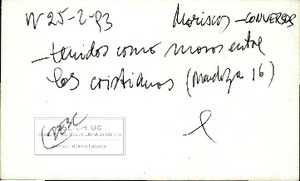 N 25-2-93 Moriscos - CONVERSOS
- tenidos como moros entre
los cristianos (Mendoza 16)